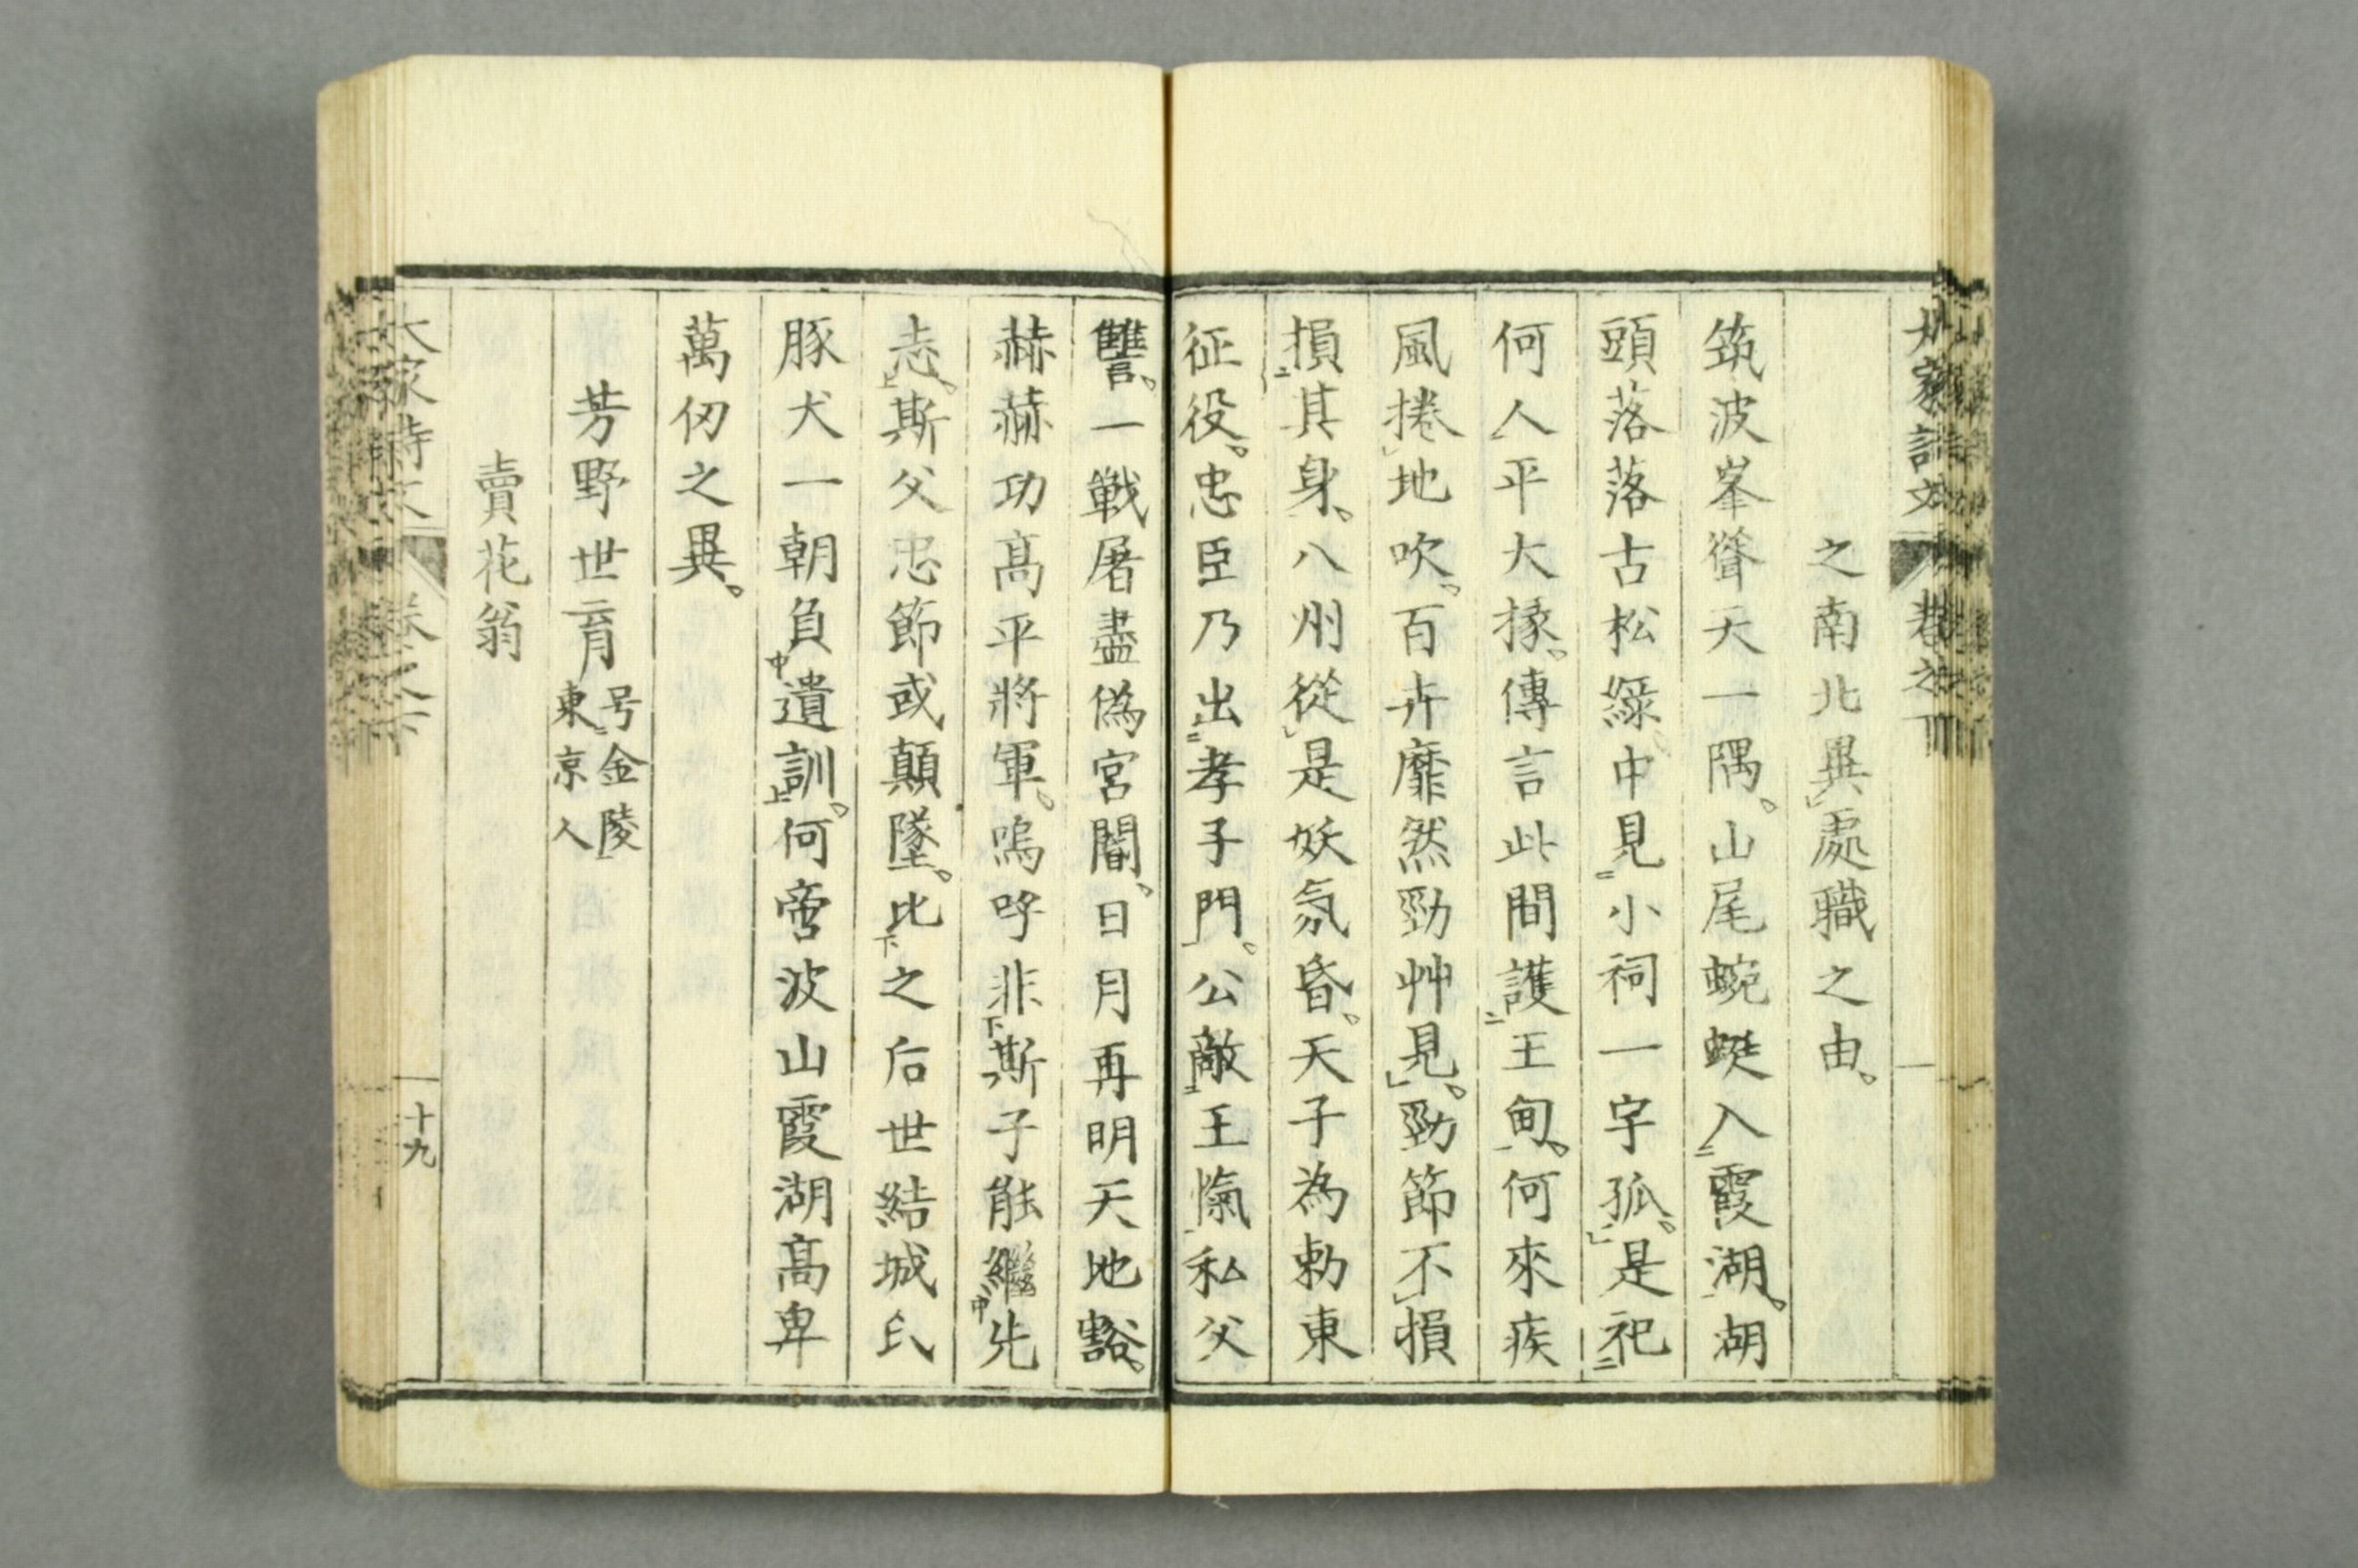 之南北異處職之由。
筑波峯聳天一隅。山尾蜿蜒入霞湖。湖
頭落落古松綠中見小祠一宇孤。是祀
何人平大掾。傳言此間護王甸。何來疾
風捲地吹。百卉靡然勁艸見。勁節不損
損其身。八州從是妖氛昏。天子為勅東
征役。忠臣乃出孝子門。公敵王愾私父
讐。一戰屠盡偽宮閽。日月再明天地豁。
赫赫功高平將軍。嗚呼非斯子能繼先
志。斯父忠節或顛墜。比之后世結城氏
豚犬一朝負遺訓。何啻波山霞湖高卑
萬仞之異。
芳野世育 号金陵
東京人
賣花翁
大家詩文 卷之
十九